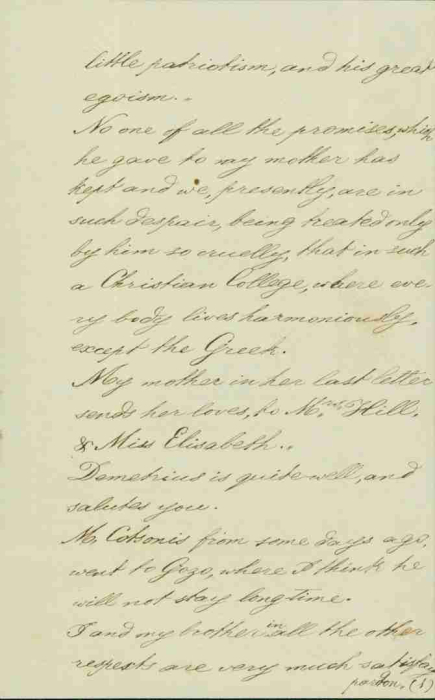 little patriotism, and his great
egoism..
No one of all the promises, which
he gave to my mother has
kept and we, presently, are in
such despair, being treated only
by him so cruelly, that in such
a Christian College, where eve-
ry body lives harmoniously,
except the Greek.
My mother in her last letter
sends her loves, to Mrs. Hill,
& Miss Elisabeth..
Demetrius is quite well, and
salutes you.
M. Cotsonis from some days ago,
went to Gozo, where I think he
will not stay longtime.
I and my brother in all the other
respects are very much satisfac
pardon, (1)